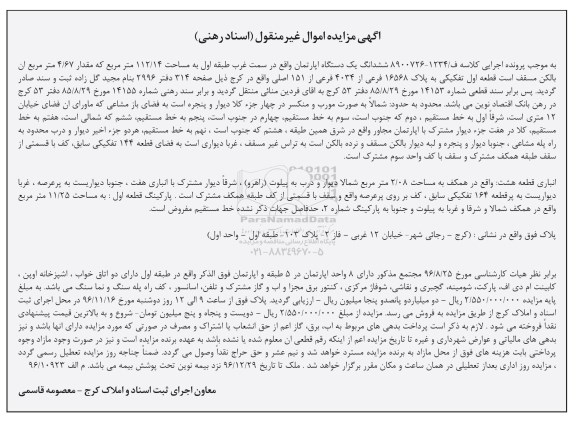 آگهی مزایده اموال غیرمنقول (اسناد رهنی)
به موجب پرونده اجرایی کلاسه ف/۱۲۳۴-۸۹۰۰۷۲۶ ششدانگ یک دستگاه آپارتمان واقع در سمت غرب طبقه اول به مساحت ۱۱۲/۱۴ متر مربع که مقدار ۴/۶۷ متر مربع آن
بالکن مسقف است قطعه اول تفکیکی به پلاک ۱۶۵۶۸ فرعی از ۴۰۳۴ فرعی از ۱۵۱ اصلی واقع در کرج ذیل صفحه ۳۱۴ دفتر ۲۹۹۶ بنام مجید گل زاده ثبت و سند صادر
گردید. پس برابر سند قطعی شماره ۱۴۱۵۳ مورخ ۸۵/۸/۲۹ دفتر ۵۳ کرج به آقای فردین منائی منتقل گردید و برابر سند رهنی شماره ۱۴۱۵۵ مورخ ۸۵/۸/۲۹ دفتر ۵۳ کرج
در رهن بانک اقتصاد نوین می باشد. محدوده به حدود: شمالاً به صورت مورب و منکسر در چهار جزء کلا دیوار و پنجره است به فضای باز مشاعی که ماورای آن فضای خیابان
۱۲ متری است، شرقا اول به خط مستقیم ، دوم که جنوب است، سوم به خط مستقیم، چهارم در جنوب است، پنجم به خط مستقیم، ششم که شمالی است، هفتم به خط
مستقیم، کلا در هفت جزء دیوار مشترک با آپارتمان مجاور واقع در شرق همین طبقه ، هشتم که جنوب است ، نهم به خط مستقیم، هردو جزء اخیر دیوار و درب محدود به
راه پله مشاعی ، جنوبا دیوار و پنجره و لبه دیوار بالکن مسقف و نرده بالکن است به تراس غیر مسقف ، غربا دیواری است به فضای قطعه ۱۴۴ تفکیکی سابق، کف با قسمتی از
سقف طبقه همکف مشترک و سقف با کف واحد سوم مشترک است.
انباری قطعه هشت: واقع در همکف به مساحت ۲/۰۸ متر مربع شمالا دیوار و درب به پیلوت (راهرو) ، شرقاً دیوار مشترک با انباری هفت ، جنوبا دیواریست به پرعرصه ، غربا
دیواریست به پرقطعه ۱۶۴ تفکیکی سابق ، کف بر روی پرعرصه واقع و سقف با قسمتی از کف طبقه همکف مشترک است . پارکینگ قطعه اول : به مساحت ۱۱/۲۵ متر مربع
واقع در همکف شمالا و شرقا و غربا به پیلوت و جنوبا به پارکینگ شماره ۲، حدفاصل جهات ذکر نشده خط مستقیم مفروض است.
ParsNamadData
۰۲۱-۸۸۳۴۹۶۷۰-۵
پلاک فوق واقع در نشانی : (کرج – رجائی شهر- خیابان ۱۲ غربی – فاز ۲- پلاک ۱۰۳- طبقه اول – واحد اول)
برابر نظر هیات کارشناسی مورخ ۹۶/۸/۲۵ مجتمع مذکور دارای ۸ واحد آپارتمان در ۵ طبقه و آپارتمان فوق الذکر واقع در طبقه اول دارای دو اتاق خواب ، آشپزخانه اوپن ،
کابینت ام دی اف، پارکت، شومینه، گچبری و نقاشی، شوفاژ مرکزی ، کنتور برق مجزا و آب و گاز مشترک و تلفن، آسانسور ، کف راه پله سنگ و نما سنگ می باشد. به مبلغ
پایه مزایده ۲/۵۵۰/۰۰۰/۰۰۰ ریال – دو میلیاردو پانصدو پنجا میلیون ریال – ارزیابی گردید. پلاک فوق از ساعت ۹ الی ۱۲ روز دوشنبه مورخ ۹۶/۱۱/۱۶ در محل اجرای ثبت
اسناد و املاک کرج از طریق مزایده به فروش می رسد. مزایده از مبلغ ۲/۵۵۰/۰۰۰/۰۰۰ ریال – دویست و پنجاه و پنج میلیون تومان- شروع و به بالاترین قیمت پیشنهادی
نقداً فروخته می شود . لازم به ذکر است پرداخت بدهی های مربوط به آب، برق، گاز اعم از حق انشعاب یا اشتراک و مصرف در صورتی که مورد مزایده دارای آنها باشد و نیز
بدهی های مالیاتی و عوارض شهرداری و غیره تا تاریخ مزایده اعم از اینکه رقم قطعی آن معلوم شده یا نشده باشد به عهده برنده مزایده است و نیز در صورت وجود مازاد وجوه
پرداختی بابت هزینه های فوق از محل مازاد به برنده مزایده مسترد خواهد شد و نیم عشر و حق حراج نقداً وصول می گردد. ضمناً چناچه روز مزایده تعطیل رسمی گردد
، مزایده روز اداری بعداز تعطیلی در همان ساعت و مکان مقرر برگزار خواهد شد . ملک تا تاریخ ۹۶/۱۲/۲۹ نزد بیمه نوین تحت پوشش بیمه می باشد. م الف ۹۶/۱۰۹۲۳
معاون اجرای ثبت اسناد و املاک کرج – معصومه قاسمی